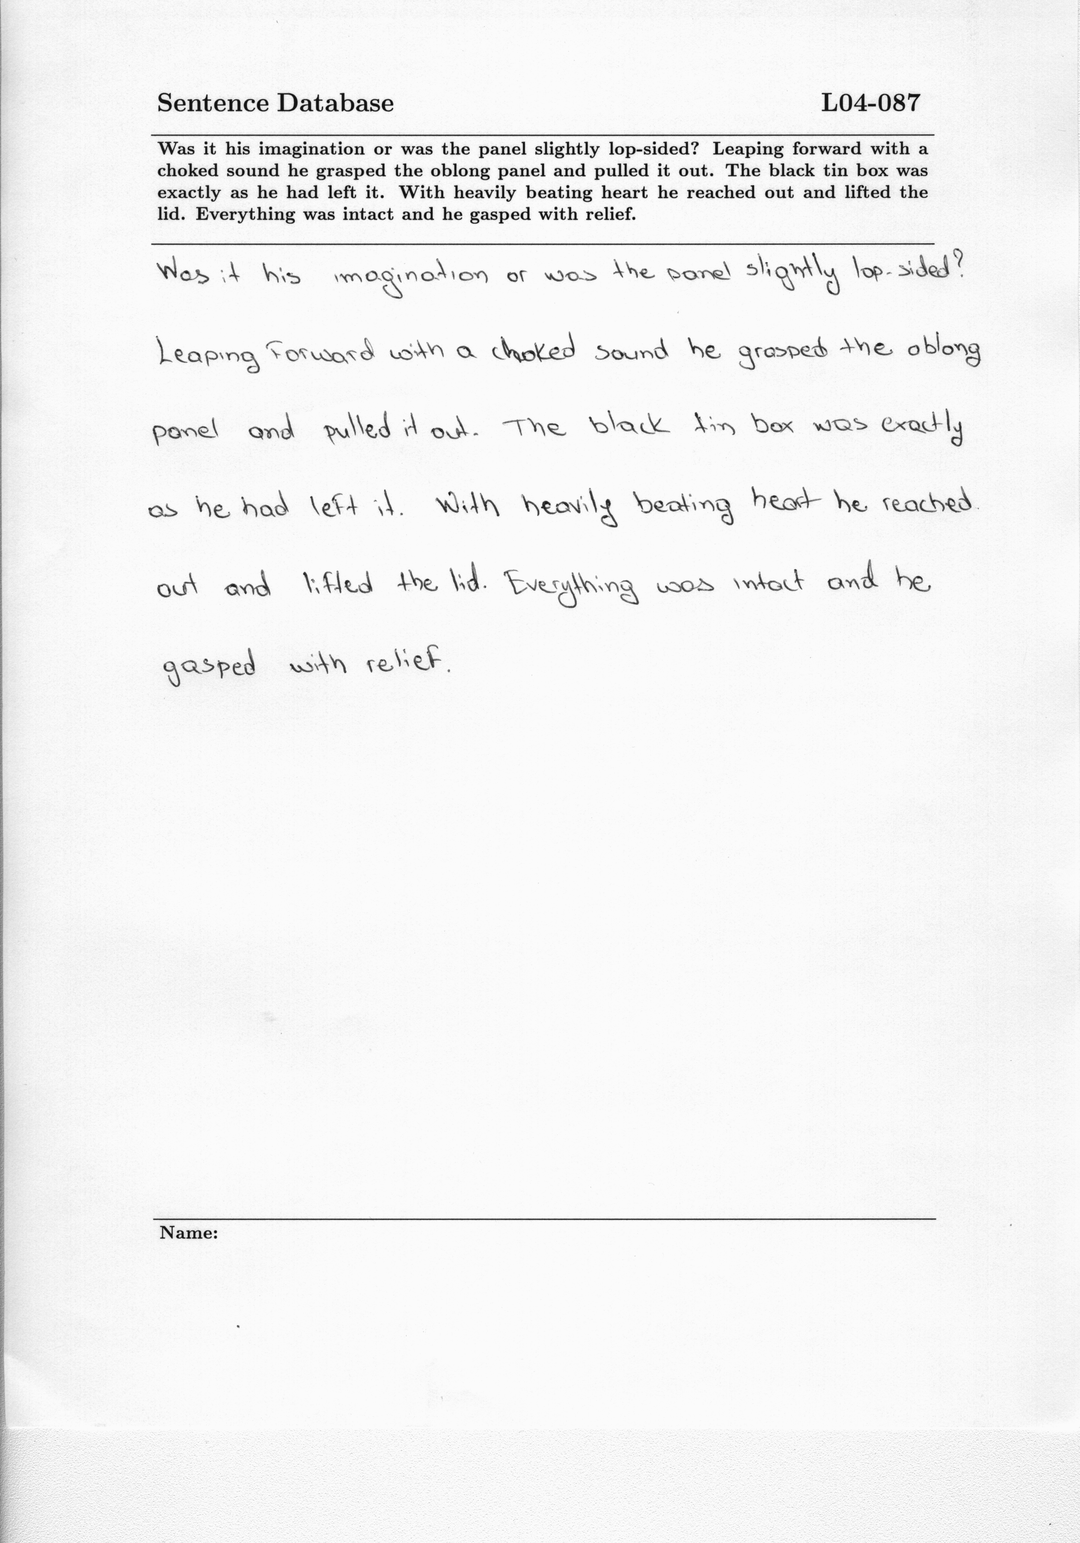 Sentence Database L04-087
Was it his imagination or was the panel slightly lop-sided? Leaping forward with a
choked sound he grasped the oblong panel and pulled it out. The black tin box was
exactly as he had left it. With heavily beating heart he reached out and lifted the
lid. Everything was intact and he gasped with relief.
Was it his imagination or was the panel slightly lop-sided?
Leaping forward with a choked sound he grasped the oblong
panel and pulled it out. The black tin box was exactly
as he had left it. With heavily beating heart he reached
out and lifted the lid. Everything was intact and he
gasped with relief.
Name: